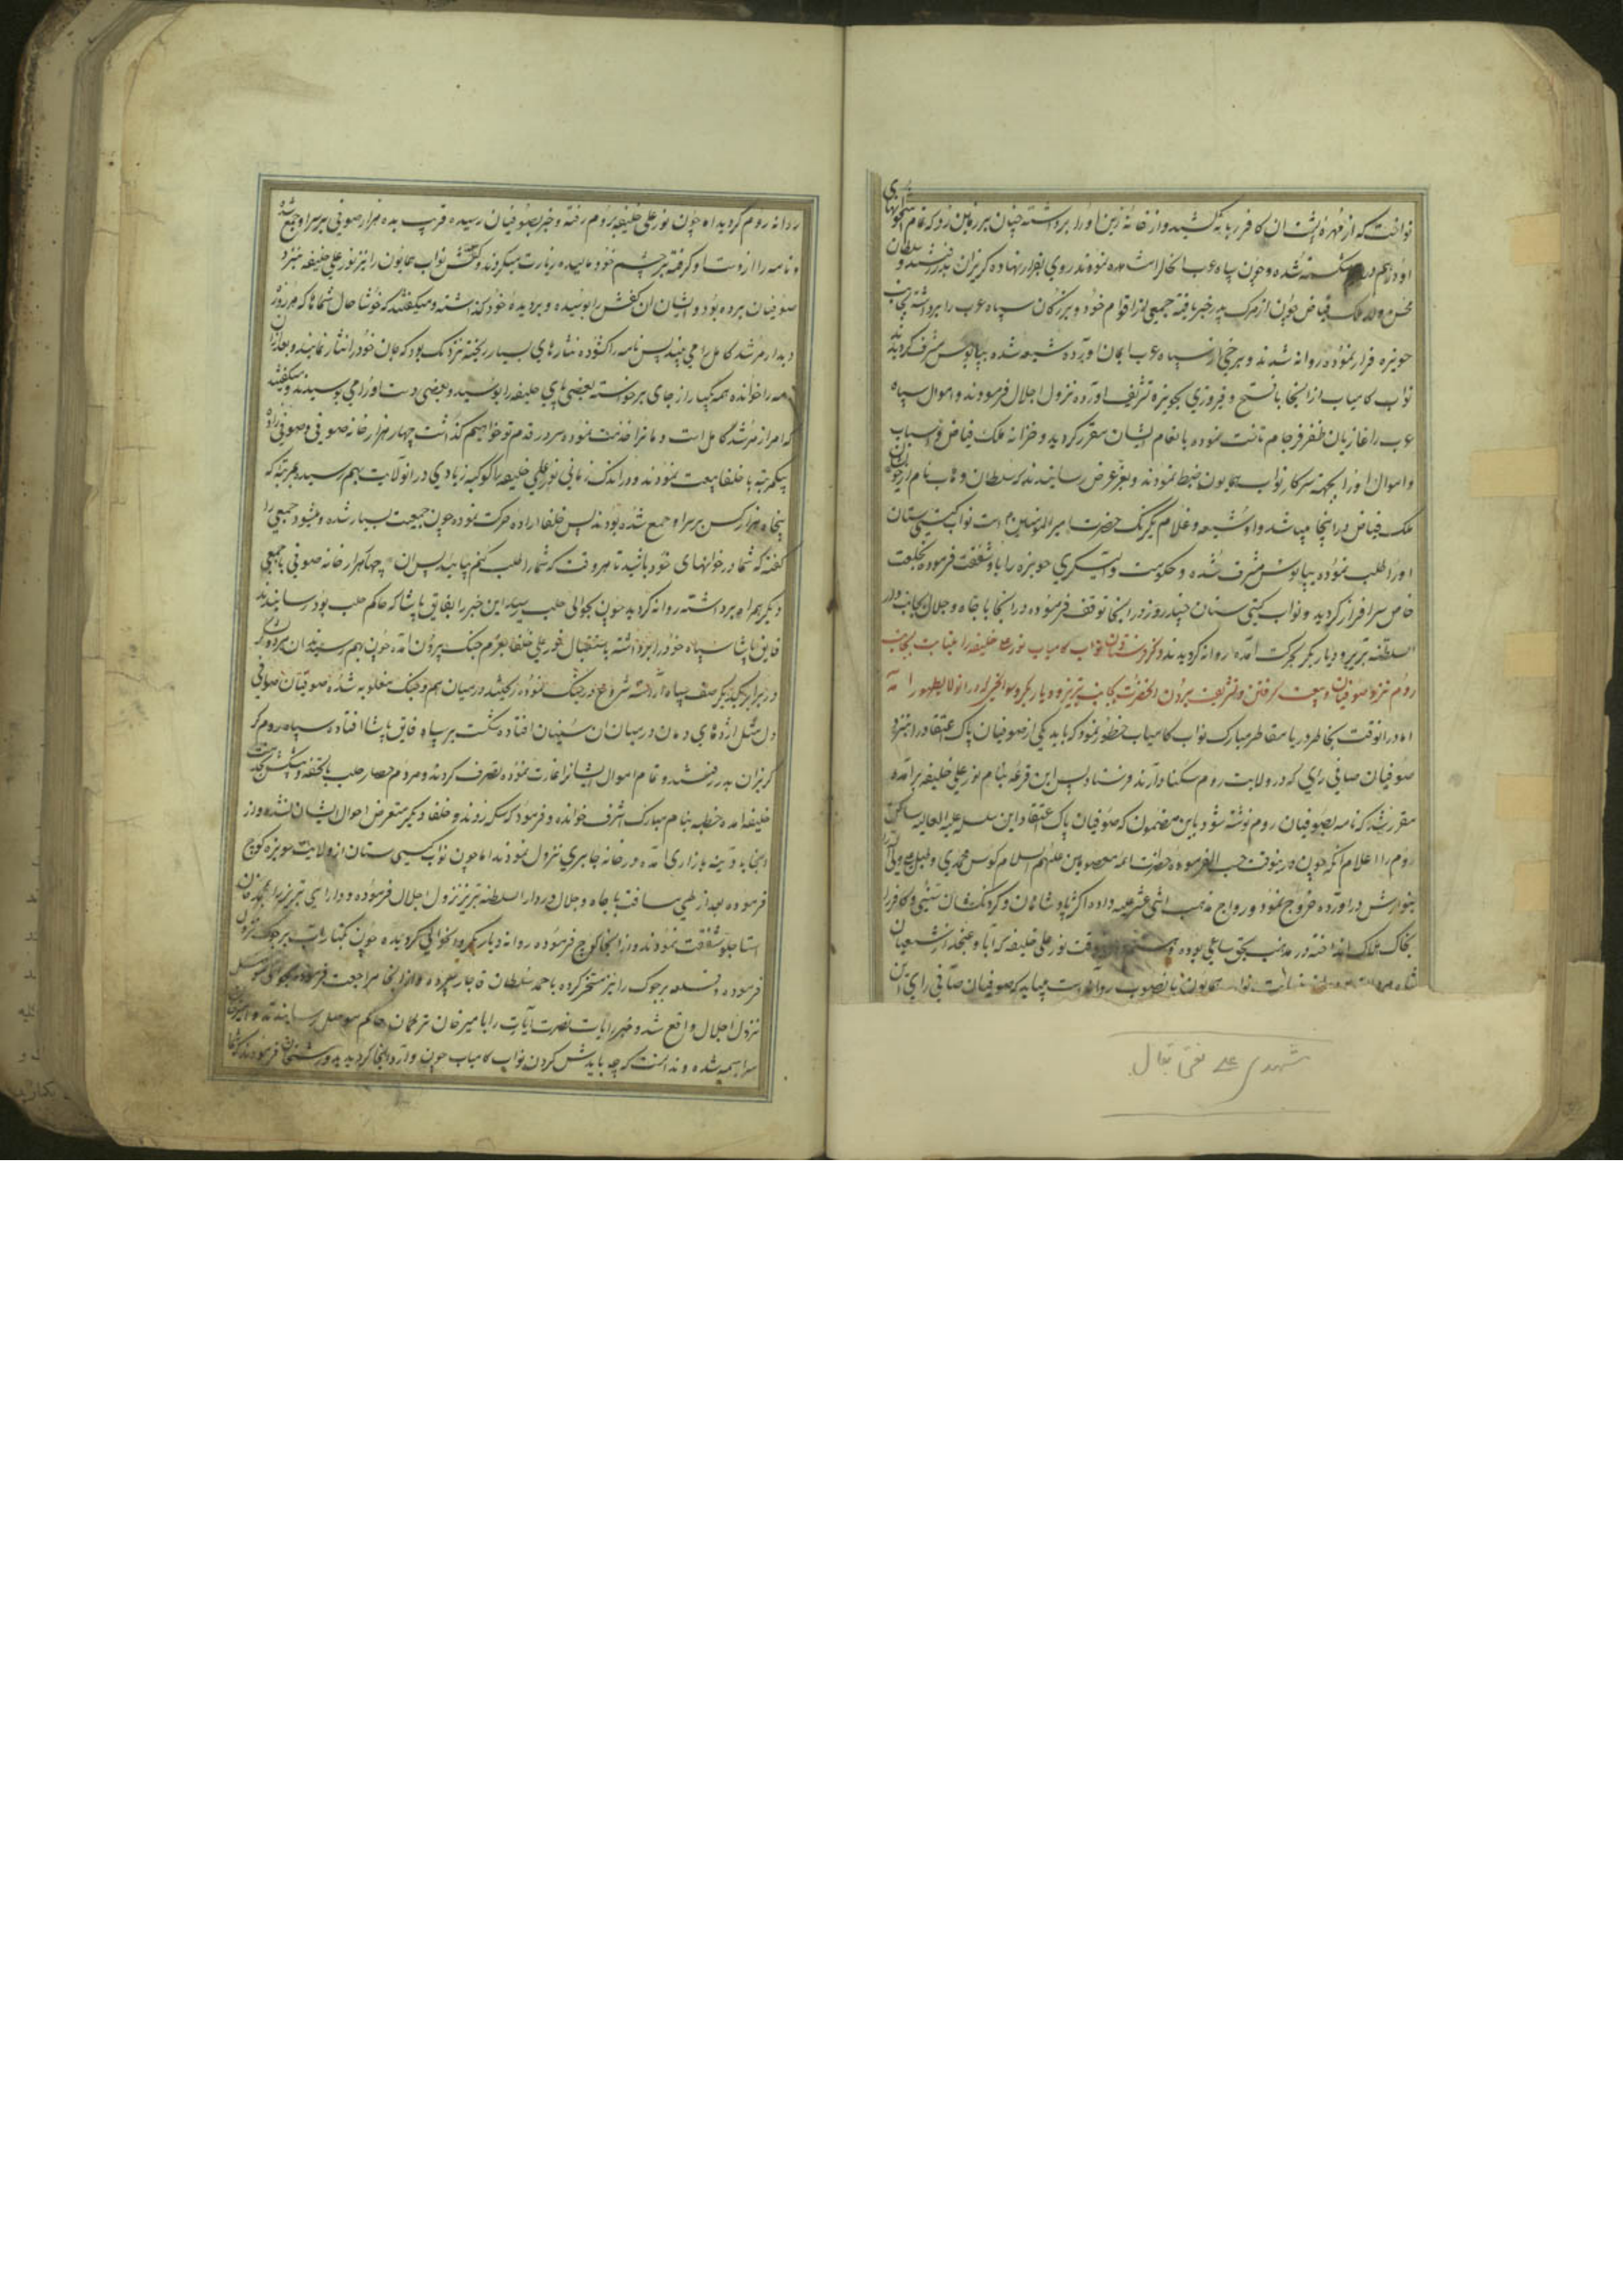 نواخت که از مهره پشت ان کافر زبانه کشید و از خانه زین او را برداشته چنان بر زمین زد که تمام استخوانهای
او درهم شکسته شده و چون سپاه عرب انحال را مشاهده نمودند روی بفرار نهاده گریزان بدر رفتند و سلطان
محسن ولد ملک فیاض چون از مرک پدر خبر یافته جمعی از اقوام خود و بزرکان سپاه عرب را برداشته بجانب
حویزه فرار نموده روانه شدند و برخی از سپاه عرب ایمان اورده شیعه شده بپابوس مشرف کردیدند
نواب کامیاب از انجا با فتح و فیروزی بحویزه تشریف اورده نزول اجلال فرمودند و اموال سپاه
عرب را غازیان ظفر فرجام تاخت نموده بانعام ایشان مقرر کردید و خزانه ملک فیاض و اسباب
و اموال او را بجهته سرکار نواب همایون ضبط نمودند و بعز عرض رسانیدند که سلطان وهاب نام
ملک فیاض در اینجا میباشد و او شیعه و غلام یکرنک حضرت امیرالمؤمنین است نواب کیتی ستان
او را طلب نموده بپابوش مشرف شده و حکومت حویزه را باو شفقت فرموده بخلعت
خاص سرافراز کردید و نواب کیتی ستان چند روز در انجا توقف فرموده و از انجا با جاه و جلال بجانب دار
السلطنه تبریز و دیار بکر بحرکت آمده روانه کردیدند و کر فرستادن نواب کامیاب نور علی خلیفه را بنیابت بجانب
روم نزد صوفیان و بیعت کرفتن و تشریف بردن انحضرت بجانب تبریز و دیار بکر و سوانحی که در انولا بظهور آمد
اما در انوقت بخاطر دریا مقاطر مبارک نواب کامیاب خطور نمود که باید یکی از صوفیان پاک اعتقاد را بنزد
صوفیان صافی رای که در ولایت روم سکنا دارند فرستاد پس این قرعه بنام نور علی خلیفه برآمده
مقرر شد که نامه بصوفیان روم نوشته شود باین مضمون که صوفیان پاک اعتقاد این سلسله علیه العالیه ساکن
روم را اعلام انکه چون در اینوقت حسب الفرموده حضرات ائمه معصومین علیهم السلام کوس محمدی و طبل
بنوازش در اورده خروج نموده و رواج مذهب اثنی عشر علیه داده اکثر پادشاهان و کردنکشان سنی و کافر را
بخاک هلاک انداخته در مذهب بحق ساعی بوده وقت نور علی خلیفه که ابا و عنجد از شیعیان
نواب همایون بانصوب روانه است میباید که صوفیان صافی رای ان
شهدی علی نقی بقال
روانه روم کردید اه چون نور علی خلیفه بروم رفته و خبر بصوفیان رسیده قریب بده هزار صوفی بر سر او جمع شده
و نامه را از دست او کرفته بر چشم خود مالیده زیارت میکردند و کفش نواب همایون را نیز نور علی خلیفه بنزد
صوفیان برده بود و ایشان ان کفش را بوسیده و بر دیده خود کذاشته و میکفتند که خوشا حال شماها که هر روز
دیدار مرشد کامل را می بینید پس نامه را کشوده نثارهای بسیار ریخته نزدیک بود که جان خود را نثار نمایند و بعد از ان
نامه را خوانده همه یکبار از جای برخواسته بعضی پای خلیفه را بوسیده و بعضی دست او را می بوسیدند و میکفتند
که امر از مرشد کامل است و ما ترا خدمت نموده سر در قدم تو خواهیم کذاشت چهار هزار خانه صوفی و صوفی زاده
پیکمرتبه با خلفا بیعت نمودند و در اندک زمانی نور علی خلیفه را کوکبه زیادی در انولایت بهم رسید بمرتبه که
پنجاه هزار کس بر سر او جمع شده بودند پس خلفا اراده حرکت نموده چون جمعیت بسیار شده و میشود جمعی را
کفته که شما در خوانهای خود باشید تا هر وقت که شما را طلب کنم بیایید پس ان چهار هزار خانه صوفی با جمعی
دیگر همراه برداشته روانه کردید چون بحوالی حلب رسید این خبر را بفایق پاشا که حاکم حلب بود رسانیدند
فایق پاشا سپاه خود را برداشته باستقبال نور علی خلفا بعزم جنک بیرون آمده چون بهم رسیدند ان
در برابر یکدیگر صف سپاه آراسته شروع در جنک نموده ریختند در میان هم و جنک مغلوبه شده صوفیان صافی
دل مثل اژدهای دمان در میان ان سنیان افتاده شکست بر سپاه فایق پاشا افتاده سپاه روم
کریزان بدر رفتند و تمام اموال ایشانرا غارت نموده تصرف کردند و مردم حصار حلب با تحفه و پیشکش بخدمت
خلیفه آمده خطبه بنام مبارک اشرف خوانده و فرمود که سکه زدند و خلفا دیکر متعرض احوال ایشان نشده و از
انجا آمده در خانه نزول نمودند اما چون نواب کیتی ستان از ولایت حویزه کوچ
فرموده بعد از طی مسافت با جاه و جلال در دار السلطنه تبریز نزول اجلال فرموده و دارائی تبریز را بمحمد خان
استاجلو شفقت نمودند و از انجا کوچ فرموده روانه دیار بکر کردیده چون بکنار نزول
فرموده و قلعه را نیز مسخر کرده باحمد سلطان قاجار سپرده و از انجا مراجعت فرموده بحوالی موصل
نزول اجلال واقع شد و خبر رایات نصرت آیات را بامیر خان ترکمان حاکم موصل رسانیدند
سراسیمه شده و ندانست که چه بایدش کردن نواب کامیاب چون وارد انجا کردیدند